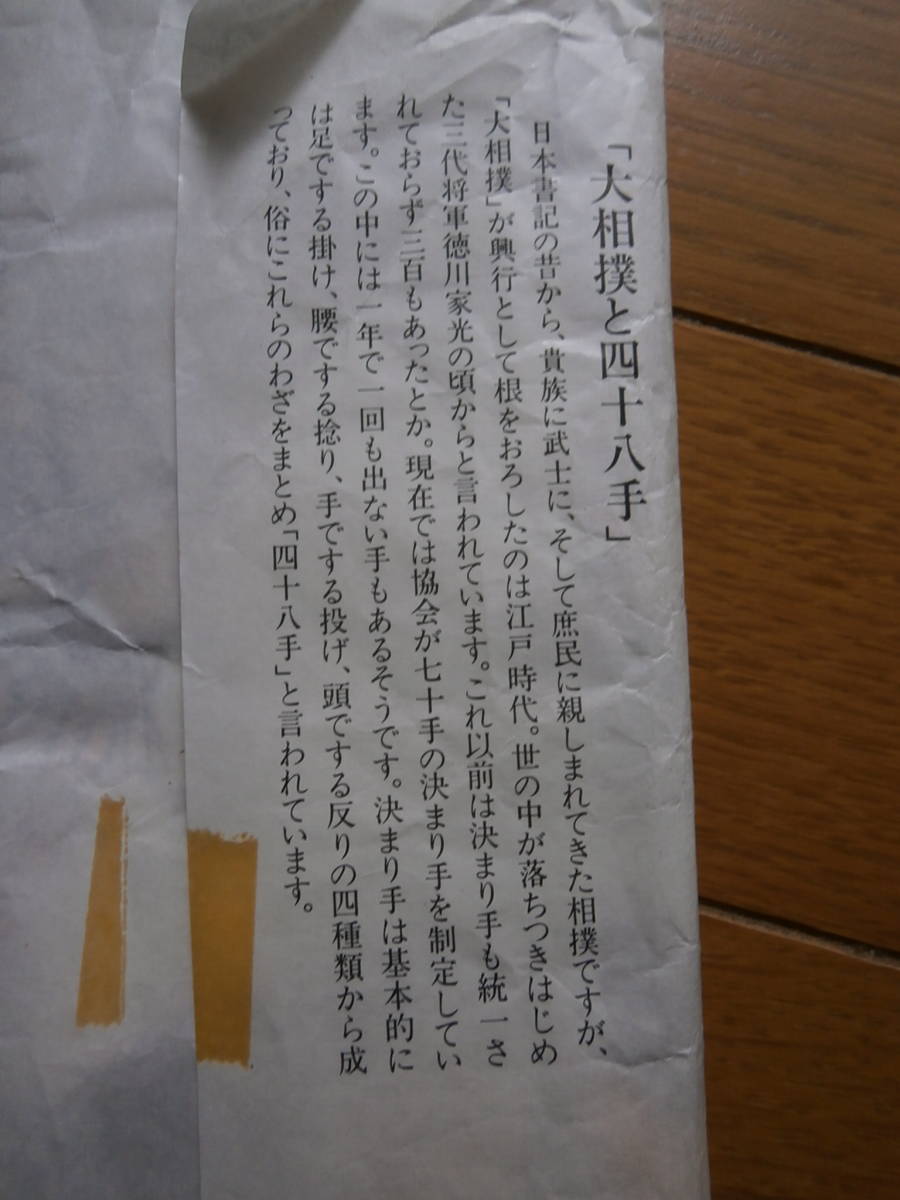 「大相撲と四十八手」
日本書記の昔から、貴族に武士に、そして庶民に親しまれてきた相撲ですが、
「大相撲」が興行として根をおろしたのは江戸時代。世の中が落ちつきはじめ
た三代将軍徳川家光の頃からと言われています。これ以前は決まり手も統一さ
れておらず三百もあったとか。現在では協会が七十手の決まり手を制定してい
ます。この中には一年で一回も出ない手もあるそうです。決まり手は基本的に
は足でする掛け、腰でする捻り、手でする投げ、頭でする反りの四種類から成
っており、俗にこれらのわざをまとめ「四十八手」と言われています。